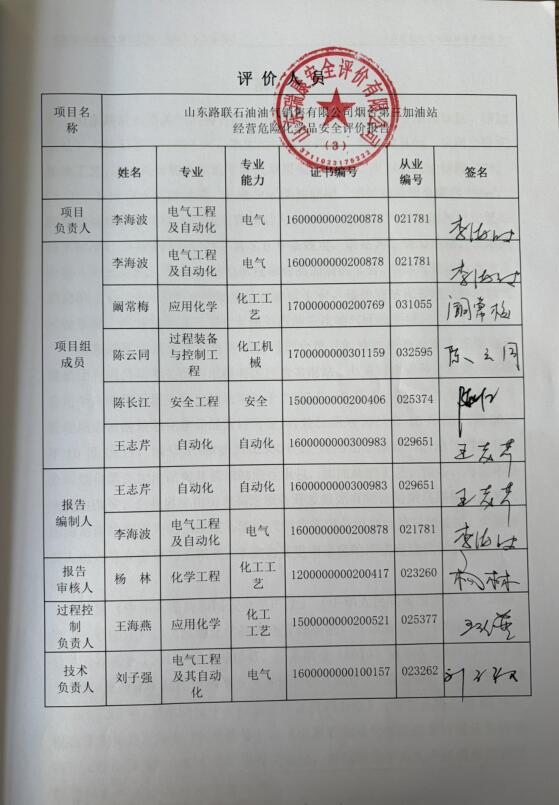 评价人员
项目名称 山东路联石油油气销售有限公司烟台第三加油站
经营危险化学品安全评价报告
山东瑞康安全评价有限公司
(3)
3711023175222
姓名 专业 专业能力 证书编号 从业编号 签名
项目负责人 李海波 电气工程及自动化 电气 1600000000200878 021781 李海波
项目组成员 李海波 电气工程及自动化 电气 1600000000200878 021781 李海波
阚常梅 应用化学 化工工艺 1700000000200769 031055 阚常梅
陈云同 过程装备与控制工程 化工机械 1700000000301159 032595 陈云同
陈长江 安全工程 安全 1500000000200406 025374
王志芹 自动化 自动化 1600000000300983 029651 王志芹
报告编制人 王志芹 自动化 自动化 1600000000300983 029651 王志芹
李海波 电气工程及自动化 电气 1600000000200878 021781 李海波
报告审核人 杨 林 化学工程 化工工艺 1200000000200417 023260 杨林
过程控制负责人 王海燕 应用化学 化工工艺 1500000000200521 025377
技术负责人 刘子强 电气工程及其自动化 电气 1600000000100157 023262 刘子强